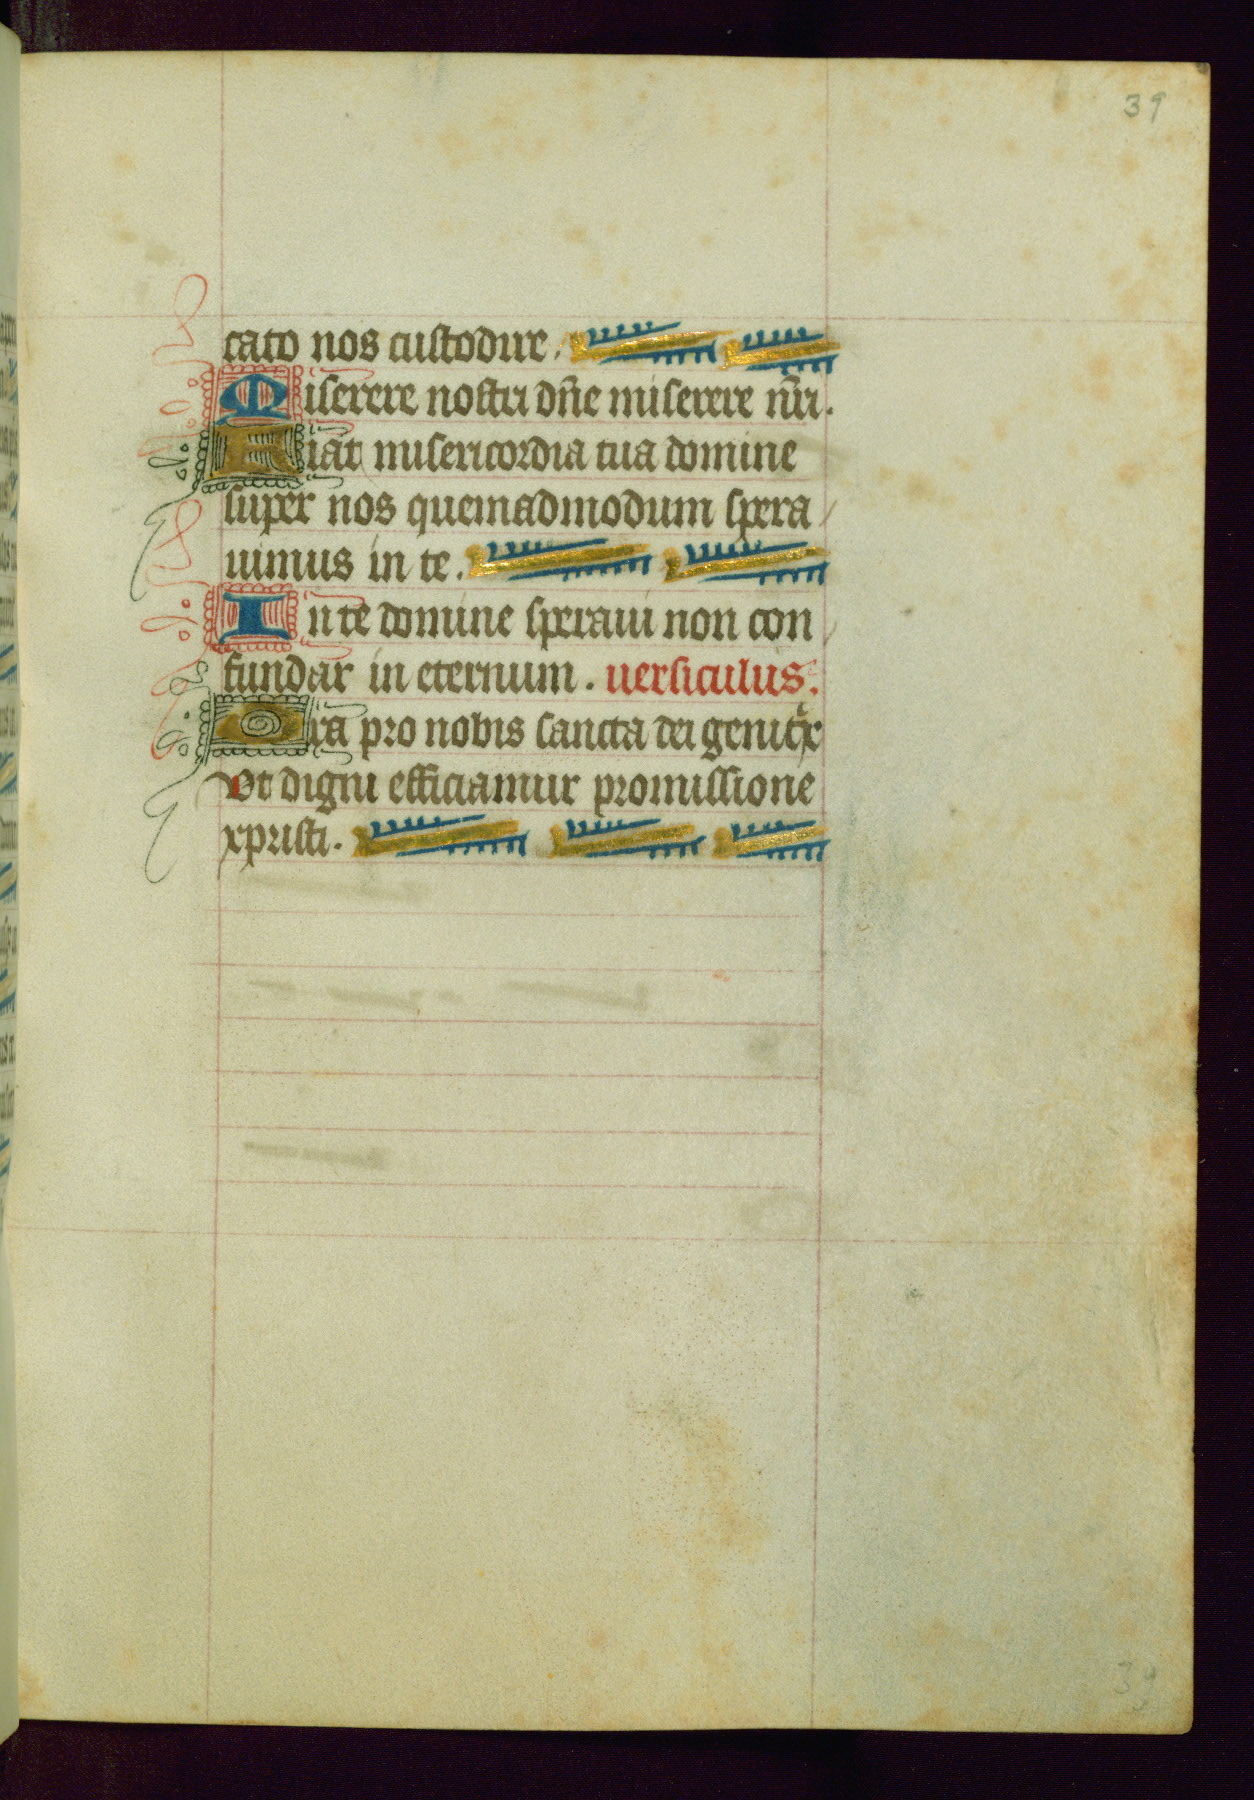 39
cato nos custodire.
Miserere nostri dn̄e miserere nr̄i.
Fiat misericordia tua domine
super nos quemadmodum spera
uimus in te.
In te domine speraui non con
fundar in eternum. uersiculus.
Ora pro nobis sancta dei genitͥx
Vt digni efficiamur promissione
xpristi.